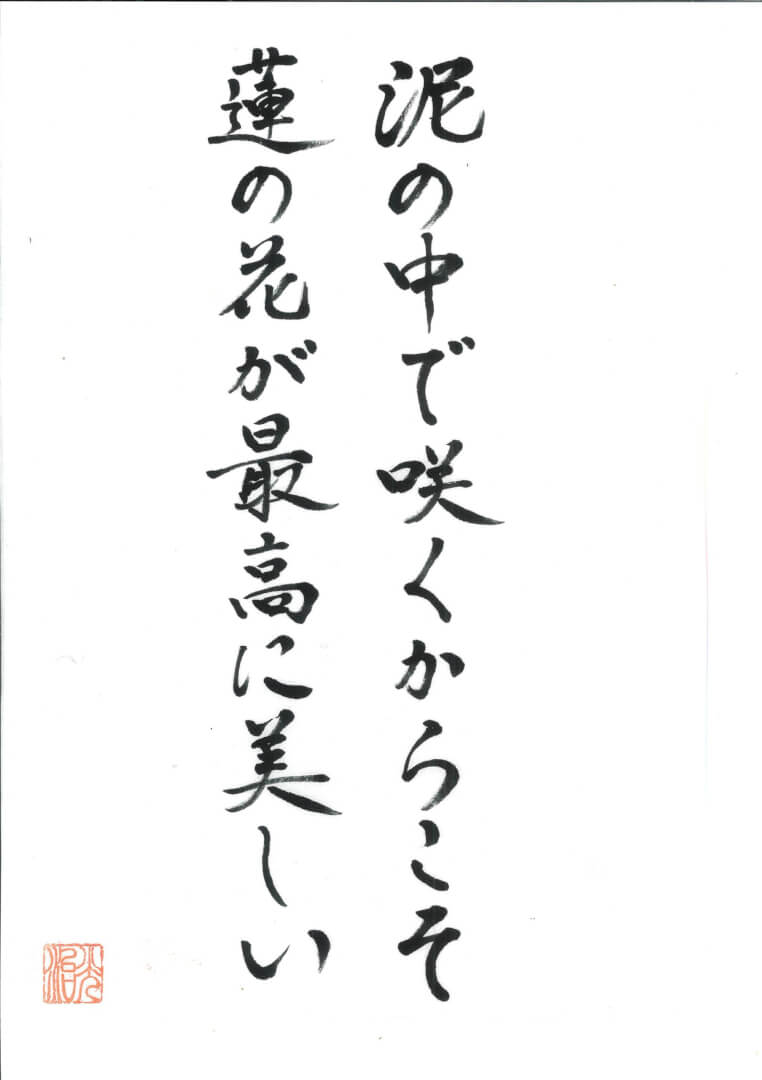 泥の中で咲くからこそ
蓮の花が最高に美しい